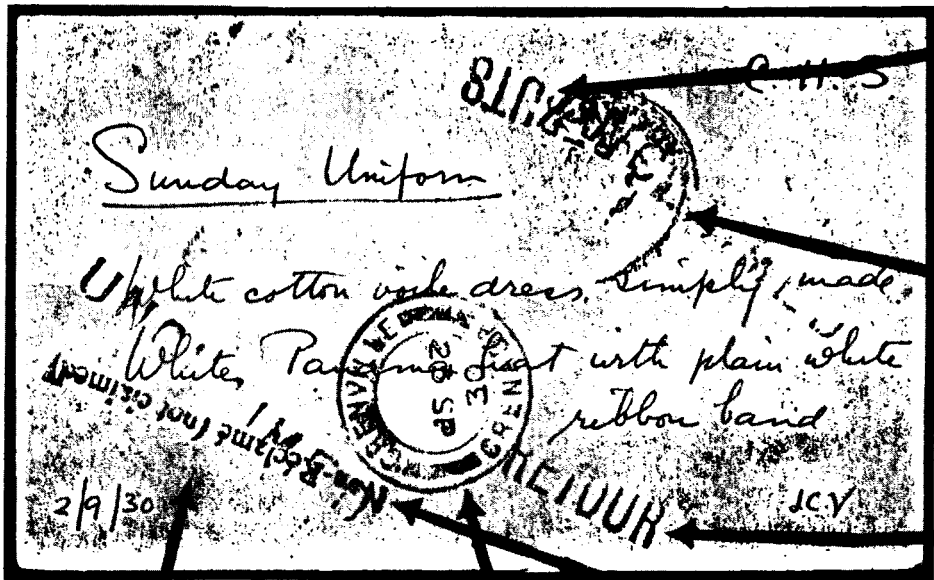 C. H. S
Sunday Uniform
White cotton voile dress, simply made.
White Panama hat with plain white
ribbon band
Non-Réclamé (not claimed)
20 SP
30
RETOUR
2/9/30